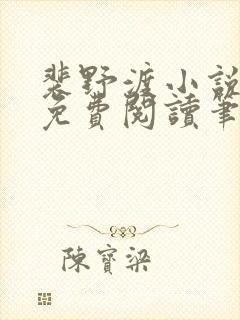 裴野渡小說
免費閱讀筆
陳寶梁